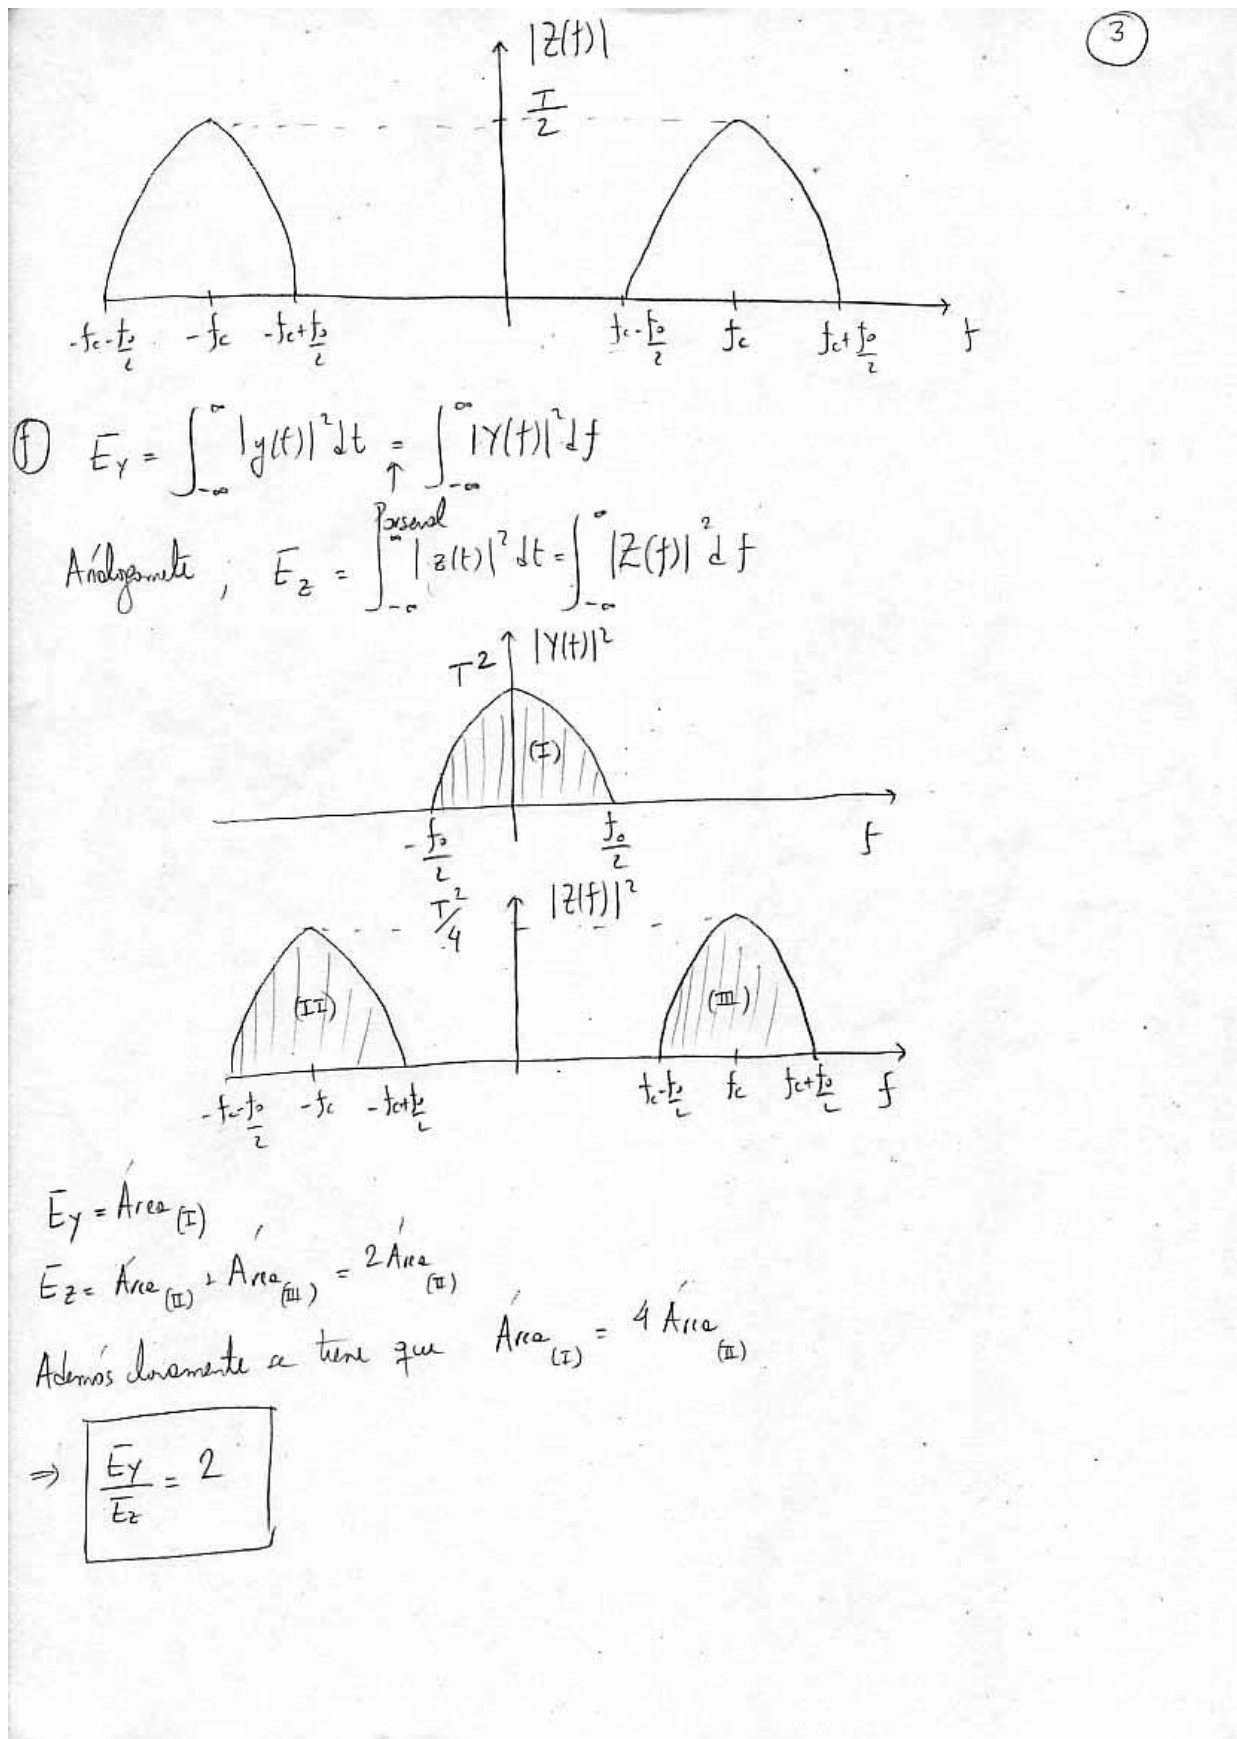 3
|Z(f)|
T/2
-fc-f0/2 -fc -fc+f0/2 fc-f0/2 fc fc+f0/2 f
f) E_Y = ∫_{-∞}^{∞} |y(t)|² dt = ∫_{-∞}^{∞} |Y(f)|² df
↑
Parseval
Análogamente, E_z = ∫_{-∞}^{∞} |z(t)|² dt = ∫_{-∞}^{∞} |Z(f)|² df
T² |Y(f)|²
(I)
-f0/2 f0/2 f
T²/4 |Z(f)|²
(II) (III)
-fc-f0/2 -fc -fc+f0/2 fc-f0/2 fc fc+f0/2 f
E_Y = Área_(I)
E_z = Área_(II) + Área_(III) = 2 Área_(II)
Además claramente se tiene que Área_(I) = 4 Área_(II)
⇒ E_Y/E_z = 2